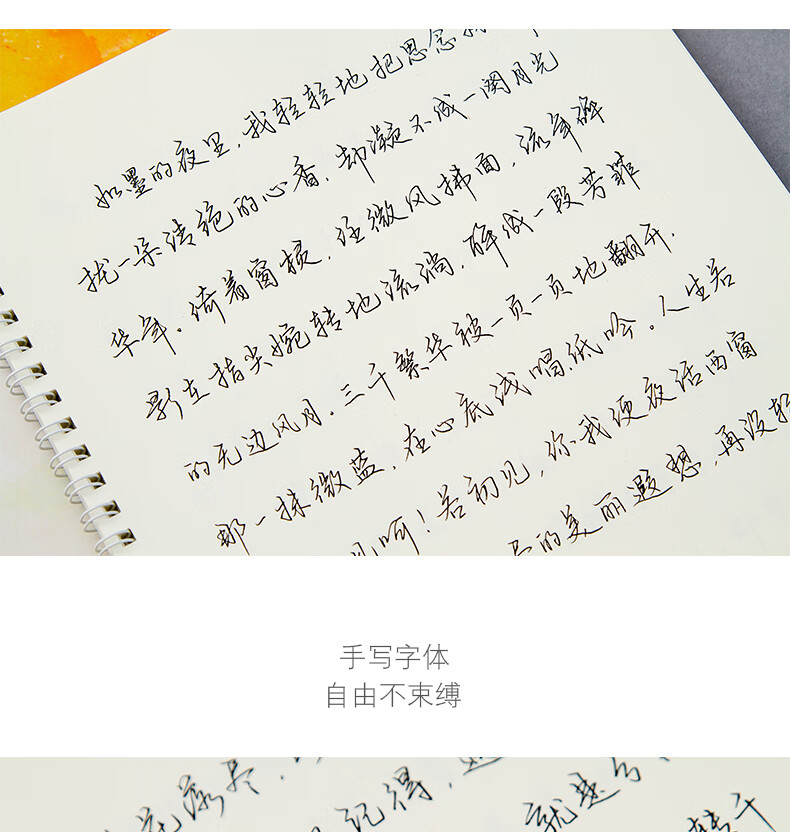 如墨的夜里，我轻轻地把思念
扰一朵清绝的心香，却凝不成一阕月光
华年。倚着窗棂，任微风拂面，流年碎
影在指尖婉转地流淌，碎成一段芳菲
的无边风月。三千繁华被一页一页地翻开，
那一抹微蓝，在心底浅唱低吟。人生若
见呵！若初见，你我便夜话西窗
的美丽遐想，再没
手写字体
自由不束缚
花落尽，
记得，
就是
转千